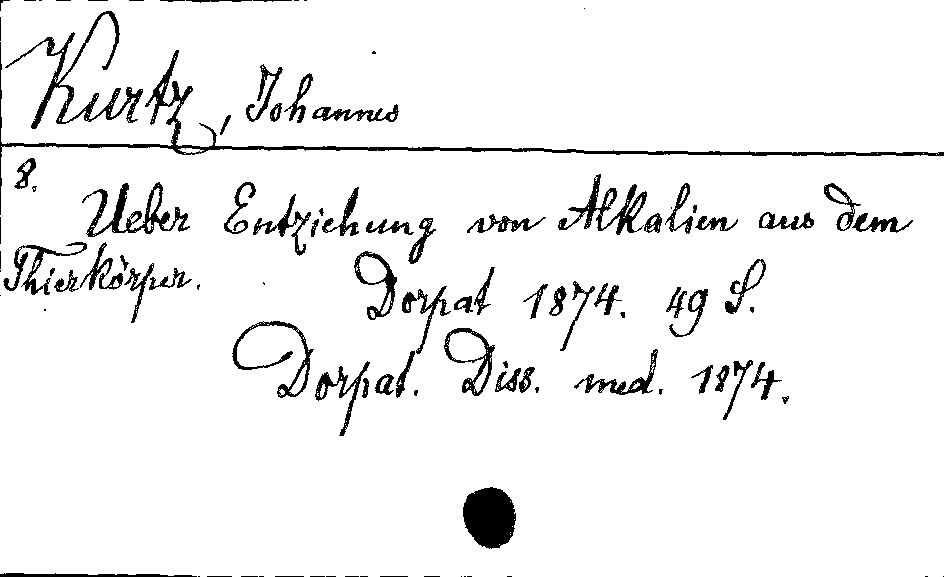 Kurtz, Johannes
8.
Ueber Entziehung von Alkalien aus dem
Thierkörper. Dorpat 1874. 49 S.
Dorpat. Diss. med. 1874.